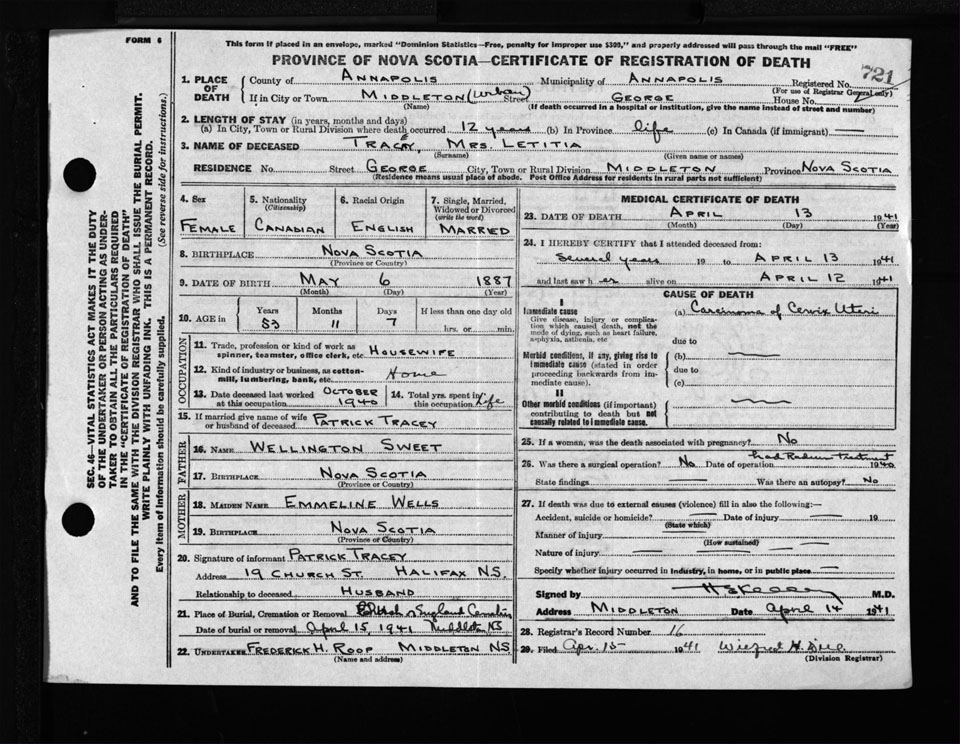 FORM 6
This form if placed in an envelope, marked "Dominion Statistics—Free, penalty for improper use $300," and properly addressed will pass through the mail "FREE"
PROVINCE OF NOVA SCOTIA—CERTIFICATE OF REGISTRATION OF DEATH
721
1. PLACE OF DEATH County of ANNAPOLIS Municipality of ANNAPOLIS Registered No.
(For use of Registrar General only)
If in City or Town MIDDLETON (Urban) Street GEORGE House No.
(Name) (If death occurred in a hospital or institution, give the name instead of street and number)
2. LENGTH OF STAY (in years, months and days)
(a) In City, Town or Rural Division where death occurred 12 years (b) In Province life (c) In Canada (if immigrant) —
3. NAME OF DECEASED TRACEY, MRS. LETITIA
(Surname) (Given name or names)
RESIDENCE No. Street GEORGE City, Town or Rural Division MIDDLETON Province NOVA SCOTIA
(Residence means usual place of abode. Post Office Address for residents in rural parts not sufficient)
4. Sex FEMALE
5. Nationality (Citizenship) CANADIAN
6. Racial Origin ENGLISH
7. Single, Married, Widowed or Divorced (write the word) MARRIED
8. BIRTHPLACE NOVA SCOTIA
(Province or Country)
9. DATE OF BIRTH MAY 6 1887
(Month) (Day) (Year)
10. AGE in Years Months Days If less than one day old
53 11 7 hrs. or min.
OCCUPATION
11. Trade, profession or kind of work as spinner, teamster, office clerk, etc HOUSEWIFE
12. Kind of industry or business, as cotton-mill, lumbering, bank, etc. Home
13. Date deceased last worked at this occupation OCTOBER 1940
14. Total yrs. spent in this occupation Life
15. If married give name of wife or husband of deceased PATRICK TRACEY
FATHER
16. NAME WELLINGTON SWEET
17. BIRTHPLACE NOVA SCOTIA
(Province or Country)
MOTHER
18. MAIDEN NAME EMMELINE WELLS
19. BIRTHPLACE NOVA SCOTIA
(Province or Country)
20. Signature of informant PATRICK TRACEY
Address 19 CHURCH ST. HALIFAX NS.
Relationship to deceased HUSBAND
21. Place of Burial, Cremation or Removal Church of England Cemetery
Date of burial or removal April 15, 1941 Middleton NS
22. UNDERTAKER FREDERICK H. ROOP MIDDLETON NS.
(Name and address)
MEDICAL CERTIFICATE OF DEATH
23. DATE OF DEATH APRIL 13 1941
(Month) (Day) (Year)
24. I HEREBY CERTIFY that I attended deceased from:
Several years 19 to APRIL 13 1941
and last saw h er alive on APRIL 12 1941
CAUSE OF DEATH
I
Immediate cause
Give disease, injury or complication which caused death, not the mode of dying, such as heart failure, asphyxia, asthenia, etc
(a) Carcinoma of Cervix Uteri
due to
Morbid conditions, if any, giving rise to immediate cause (stated in order proceeding backwards from immediate cause).
(b) —
due to
(c)
II
Other morbid conditions (if important) contributing to death but not causally related to immediate cause.
25. If a woman, was the death associated with pregnancy? No
had Radium treatment
26. Was there a surgical operation? No Date of operation 1940
State findings — Was there an autopsy? No
27. If death was due to external causes (violence) fill in also the following:—
Accident, suicide or homicide? — Date of injury — 19
(State which)
Manner of injury —
(How sustained)
Nature of injury —
Specify whether injury occurred in industry, in home, or in public place —
Signed by M.D.
Address MIDDLETON Date April 14 1941
28. Registrar's Record Number 16
29. Filed Apr. 15 1941
(Division Registrar)
SEC. 46—VITAL STATISTICS ACT MAKES IT THE DUTY
OF THE UNDERTAKER OR PERSON ACTING AS UNDER-
TAKER TO OBTAIN ALL THE PARTICULARS REQUIRED
IN THE "CERTIFICATE OF REGISTRATION OF DEATH"
AND TO FILE THE SAME WITH THE DIVISION REGISTRAR WHO SHALL ISSUE THE BURIAL PERMIT.
WRITE PLAINLY WITH UNFADING INK. THIS IS A PERMANENT RECORD.
Every item of information should be carefully supplied. (See reverse side for instructions.)